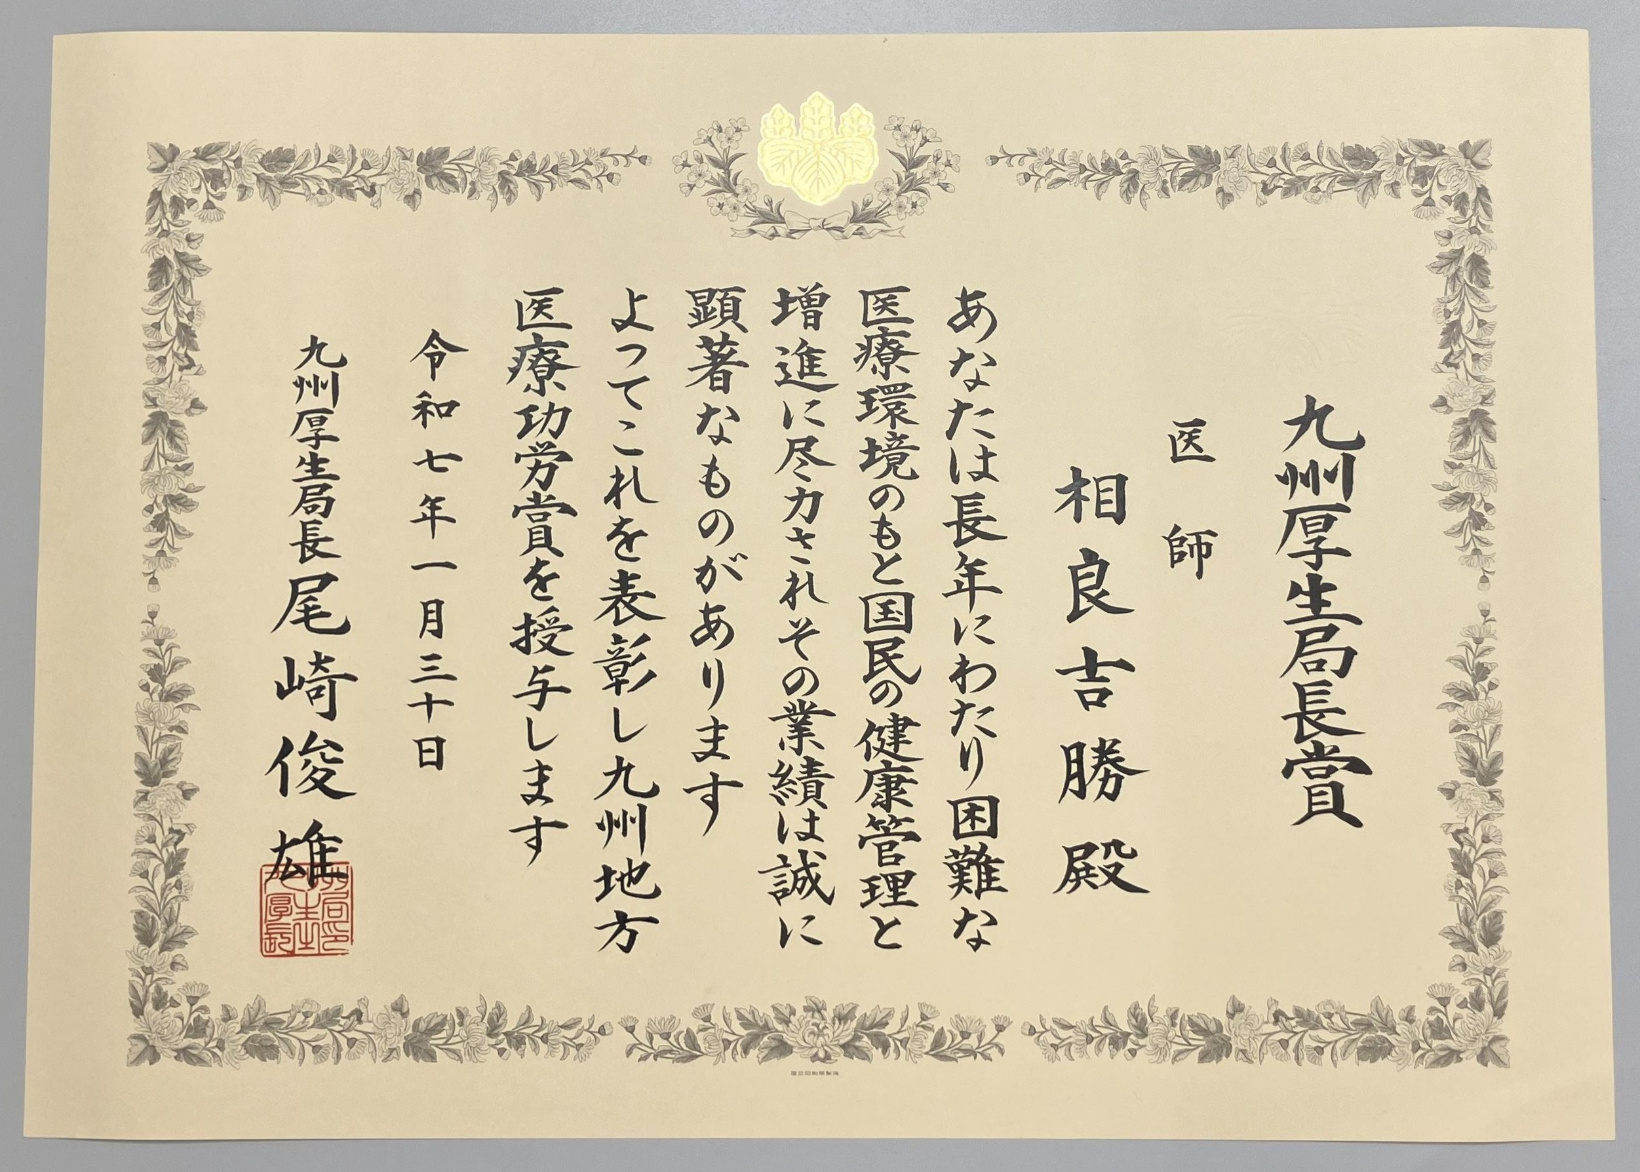 九州厚生局長賞
医師
相良吉勝殿
あなたは長年にわたり困難な
医療環境のもと国民の健康管理と
増進に尽力されその業績は誠に
顕著なものがあります
よってこれを表彰し九州地方
医療功労賞を授与します
令和七年一月三十日
九州厚生局長尾崎俊雄